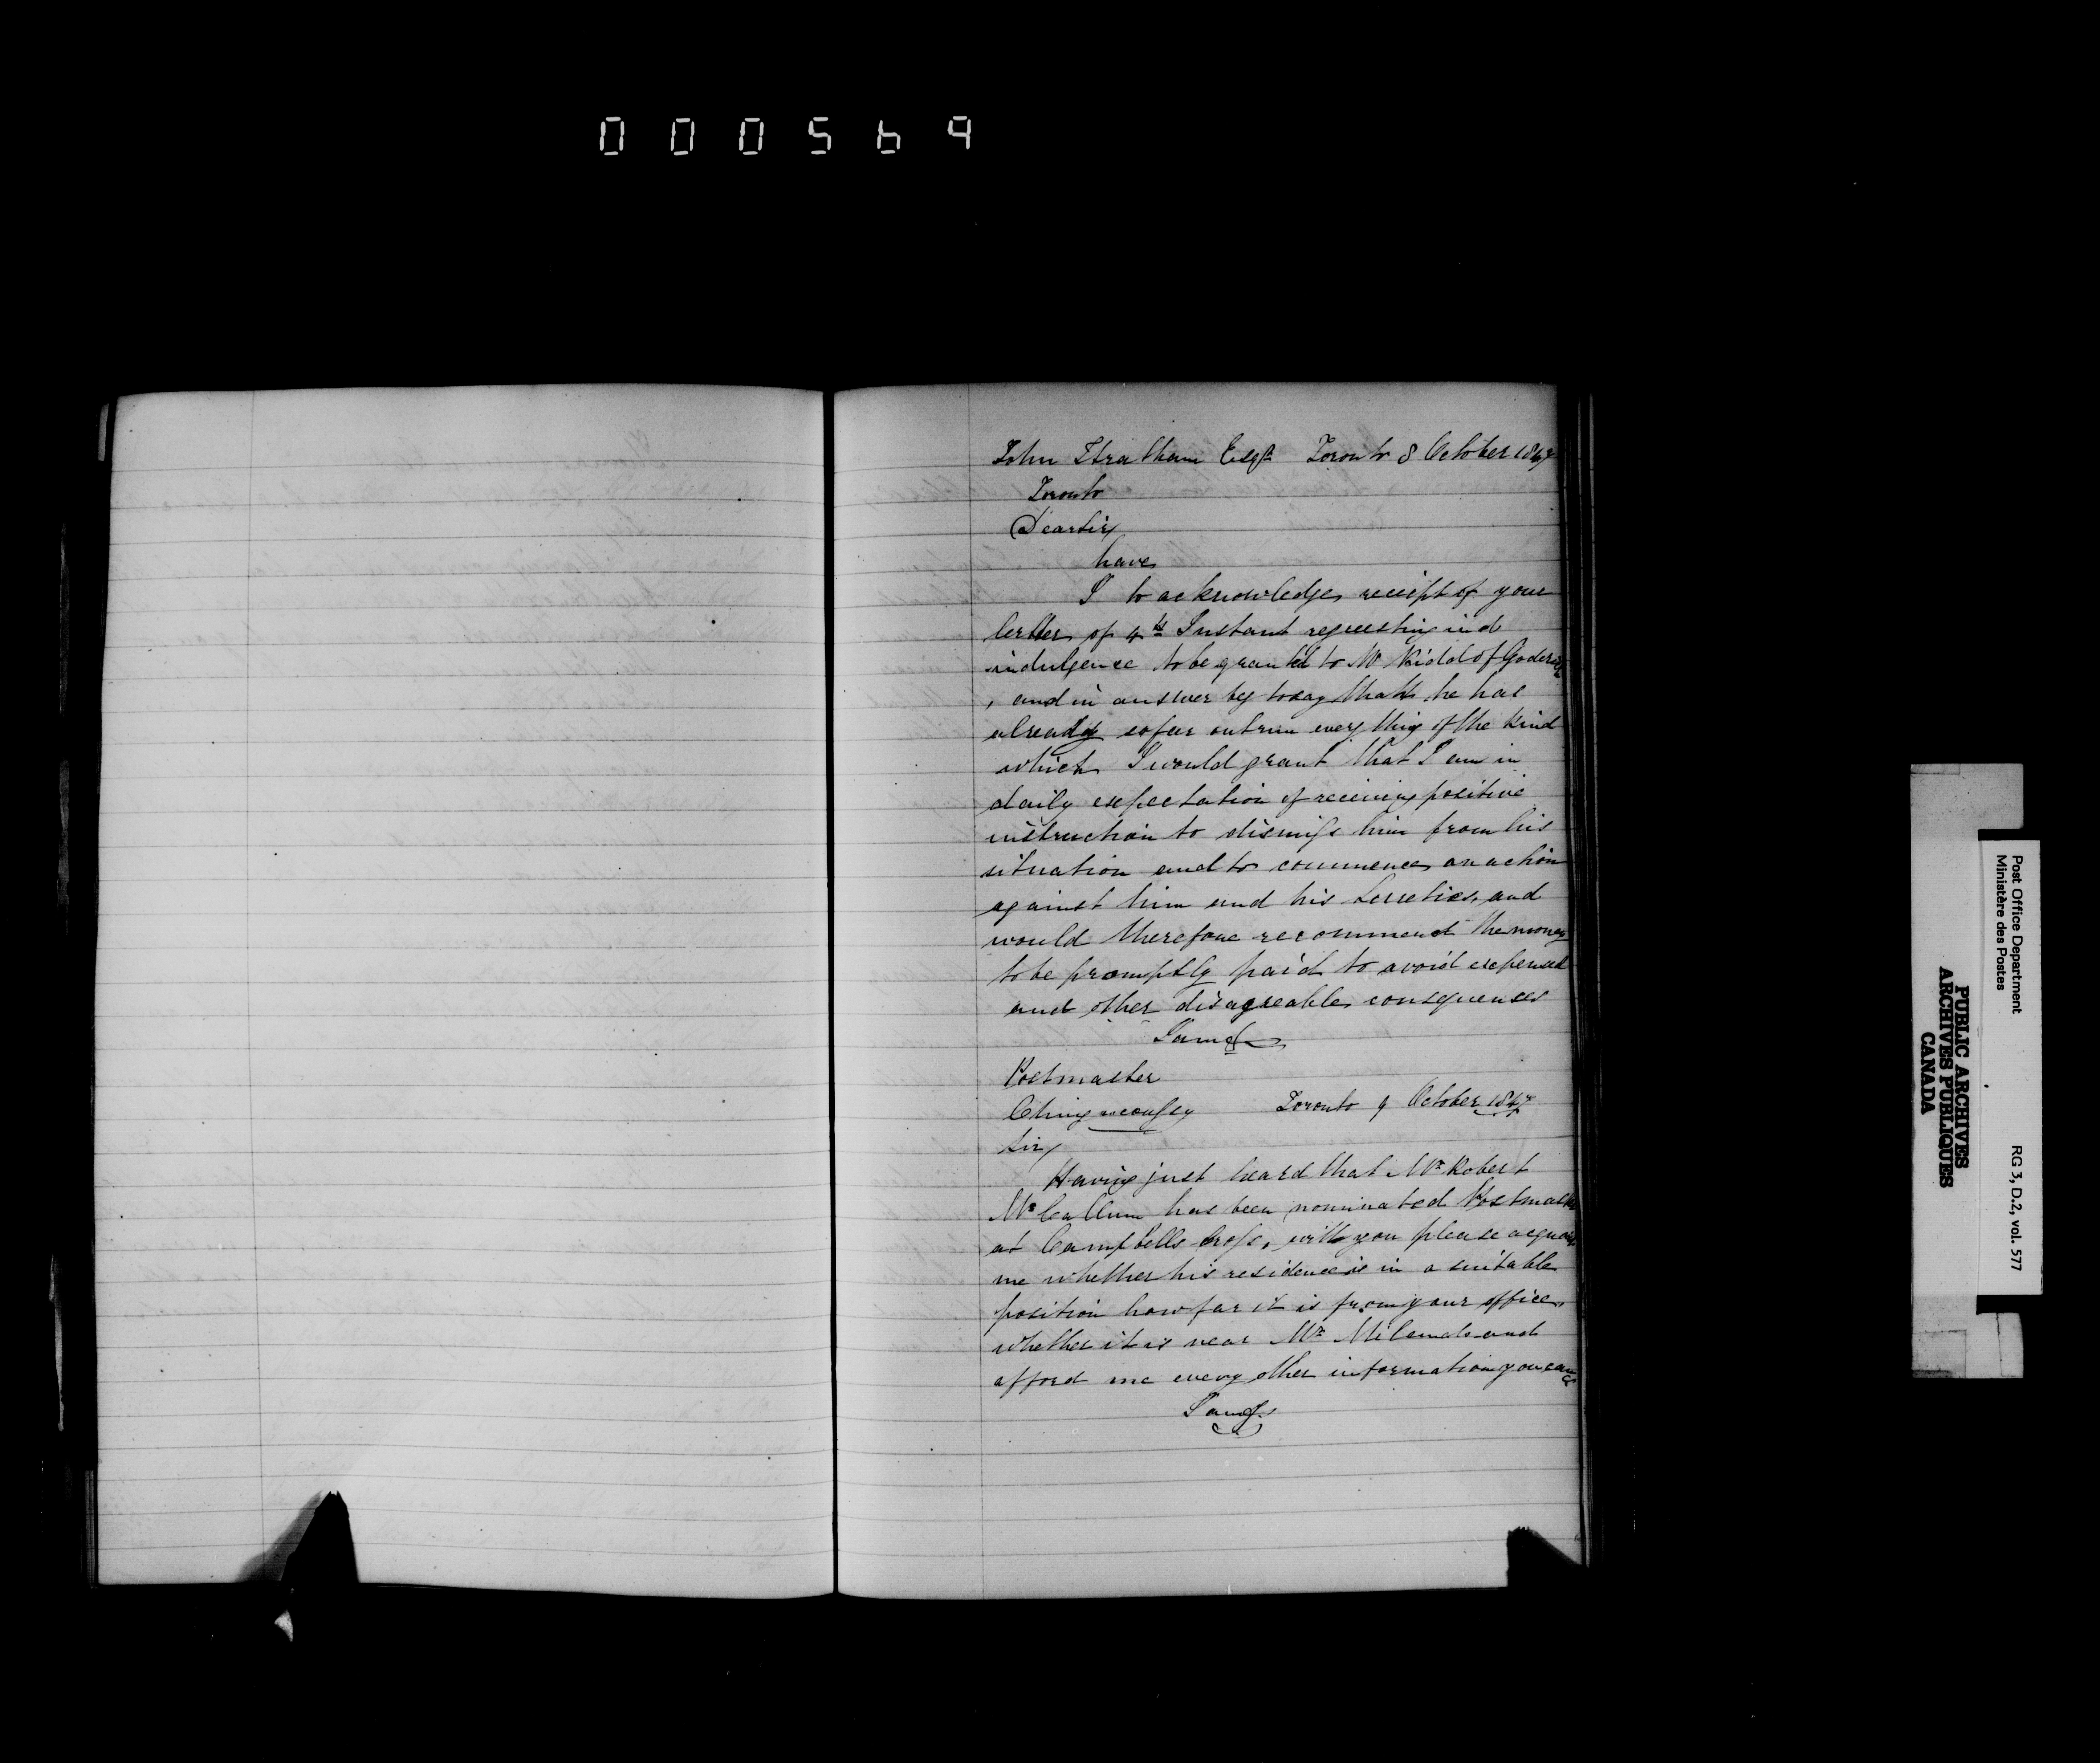 000569
John Stratham Esqr Toronto 8 October 1847
Toronto
Dear Sir
have
I to acknowledge receipt of your
letter of 4th Instant requesting ind
indulgence to be granted to Mr Kidd of Goderich
, and in answer beg to say that he has
already so far outrun every thing of the kind
which I would grant that I am in
daily expectation of receiving positive
instruction to dismiss him from his
situation and to commence an action
against him and his Sureties, and
would therefore recommend the money
to be promptly paid to avoid expense
and other disagreable consequences
I am &
Postmaster
Chingacousy Toronto 9 October 1847
Sir
Having just heard that Mr Robert
McCallum has been nominated Postmaster
at Campbells Cross, will you please acquaint
me whether his residence is in a suitable
position how far it is from your office,
whether it is near Mr and
afford me every other information you can
I am &
Post Office Department
Ministère des Postes
RG 3, D.2, vol. 577
PUBLIC ARCHIVES
ARCHIVES PUBLIQUES
CANADA